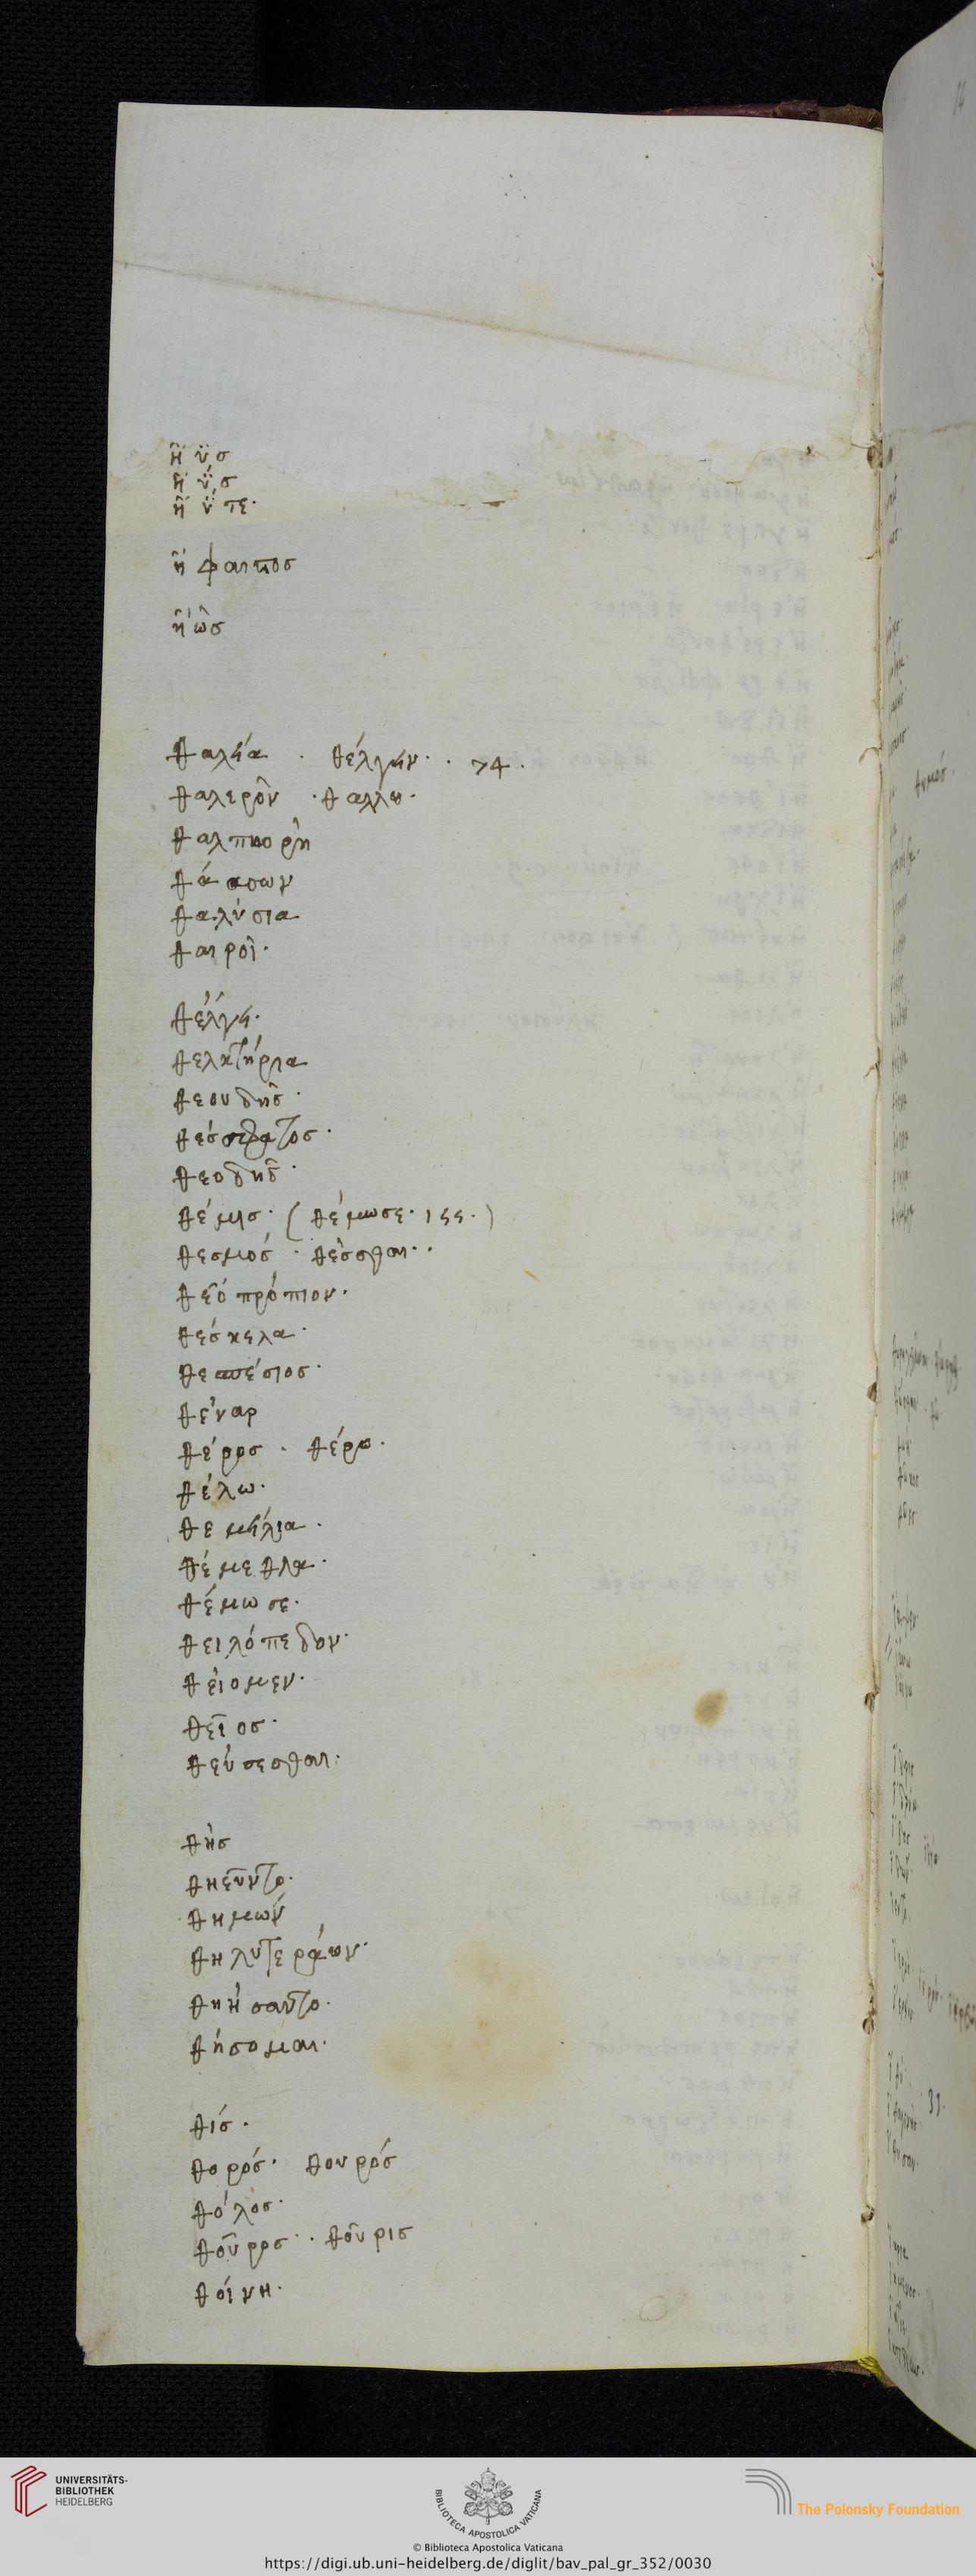 ἠΰς
ἠΰς
ἠΰτε·
ἥφαιστος
ἠώς
θαλεία · θέλγειν · · 74 ·
θαλερόν · θάλλω ·
θαλπωρή
θάασσων
θαλύσια
θαιροί ·
θέλγει ·
θελκτήρια
θεουδής ·
θέσφατος ·
θεοδής ·
θέμις · (θέμωσε · 155 · )
θεσμός · θέσσθαι · ·
θεοπρόπιον ·
θέσκελα ·
θεσπέσιος ·
θέναρ
θέρος · θέρω ·
θέλω ·
θεμείλια ·
θέμεθλα ·
θέμωσε ·
θειλόπεδον ·
θείομεν ·
θεῖος ·
θεύσεσθαι ·
θής
θηεῦντο ·
θημών
θηλυτεράων ·
θηήσαντο ·
θήσομαι ·
θίς ·
θορός · θουρός
θόλος ·
θοῦρος · · θοῦρις
θοίνη ·
θυμός ·
33 ·
UNIVERSITÄTS-
BIBLIOTHEK
HEIDELBERG
BIBLIOTECA APOSTOLICA VATICANA
The Polonsky Foundation
© Biblioteca Apostolica Vaticana
https://digi.ub.uni-heidelberg.de/diglit/bav_pal_gr_352/0030